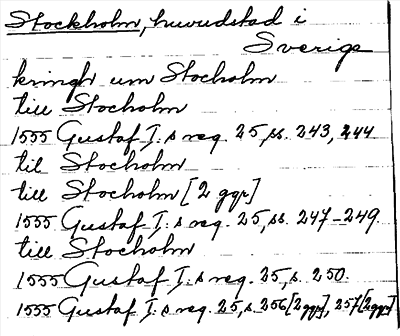 Stockholm, huvudstad i
Sverige
kringh um Stocholm
till Stocholm
1555 Gustaf I:s reg. 25, ss. 243, 244
til Stocholm
till Stocholm [2 ggr]
1555 Gustaf I:s reg. 25, ss. 247-249
till Stocholm
1555 Gustaf I:s reg. 25, s. 250.
1555 Gustaf I:s reg. 25, s. 256 [2 ggr], 257 [2 ggr]